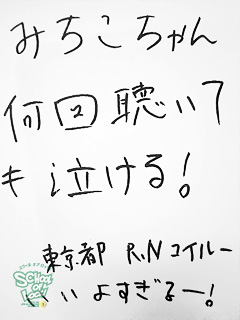 みちこちゃん
何回聴いて
も泣ける!
東京都 R.N コイルー
いいよすぎるー!
SCHOOL OF LOCK!